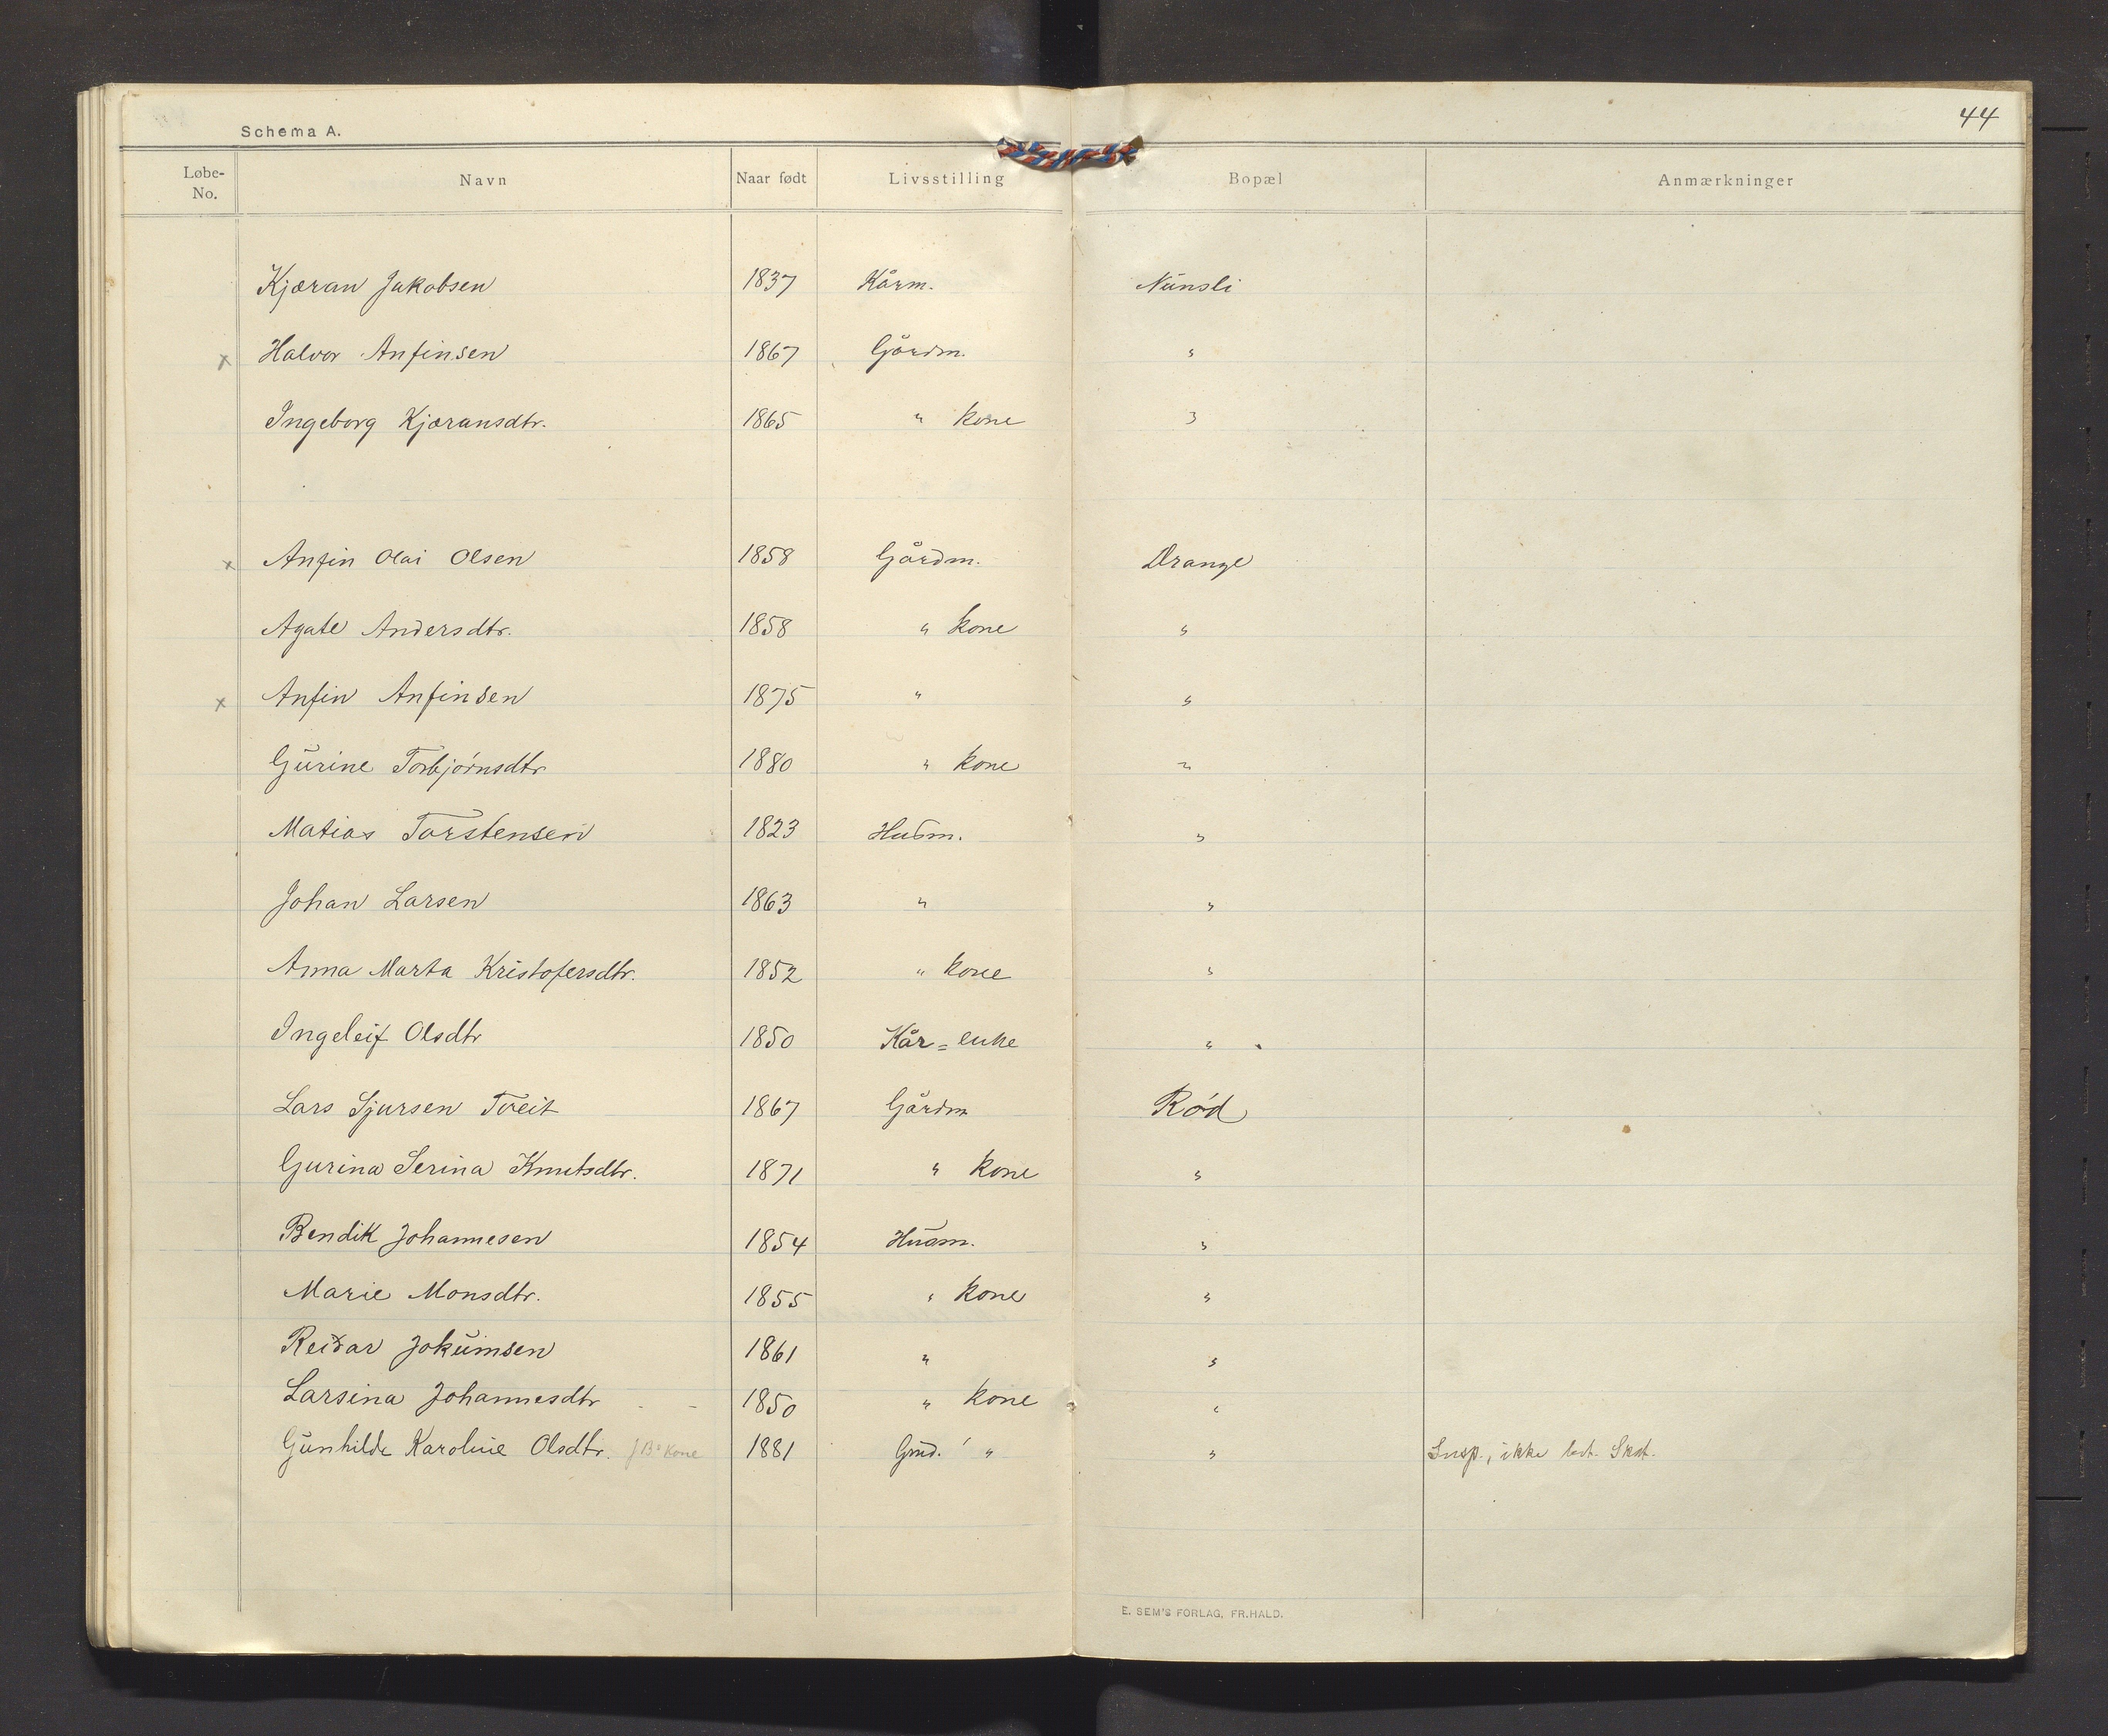 44
Schema A.
Løbe-No. Navn Naar født Livsstilling Bopæl Anmærkninger
Kjæran Jakobsen 1837 Kårm. Nunsli
x Halvor Anfinsen 1867 Gårdm. "
Ingeborg Kjæransdtr. 1865 " kone "
x Anfin Olai Olsen 1858 Gårdm. Drange
Agate Andersdtr. 1858 " kone "
x Anfin Anfinsen 1875 " "
Gurine Torbjørnsdtr 1880 " kone "
Matias Torstensen 1823 Husm. "
Johan Larsen 1863 " "
Anna Marta Kristofersdtr. 1852 " kone "
Ingeleif Olsdtr 1850 Kår=enke "
Lars Sjursen Tveit 1867 Gårdm Rød
Gurina Serina Knutsdtr. 1871 " kone "
Bendik Johannesen 1854 Husm. "
Marie Monsdtr. 1855 " kone "
Reidar Jokumsen 1861 " "
Larsina Johannesdtr 1850 " kone "
Gunhilde Karoline Olsdtr. kone 1881 Gmd. " " Susp., ikke bet. Skat.
E. SEM'S FORLAG, FR.HALD.